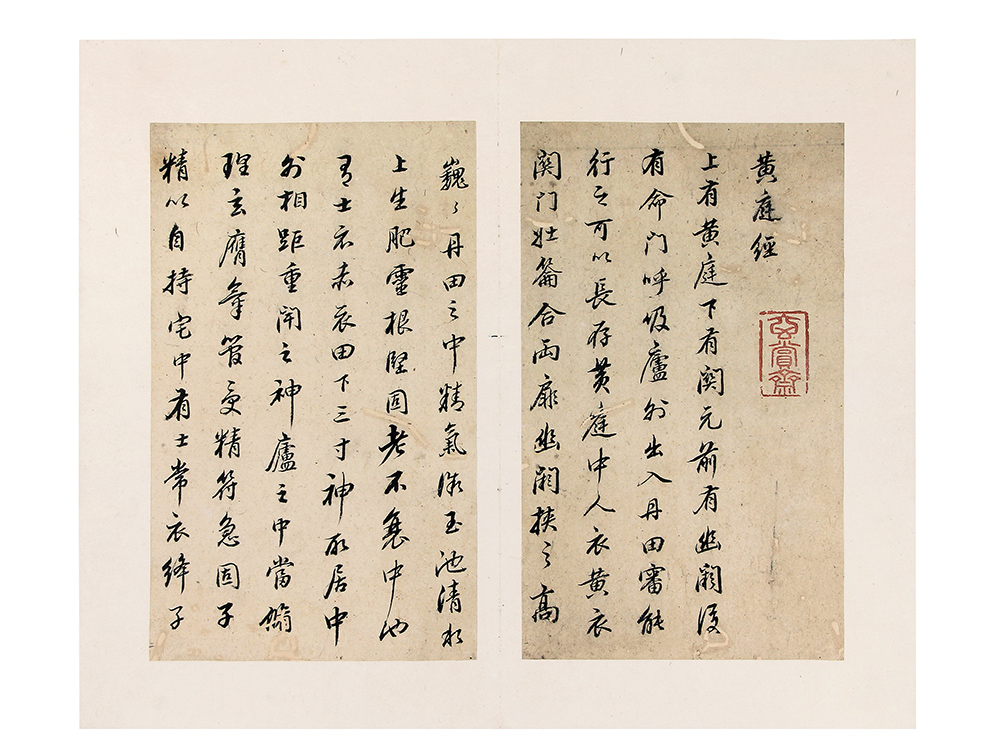 黄庭經
玄賞齋
上有黄庭下有關元前有幽闕後
有命門呼吸廬外出入丹田審能
行之可以長存黄庭中人衣黄衣
關門壯籥合兩扉幽闕挾之高
巍々丹田之中精氣微玉池清水
上生肥靈根堅固老不衰中池
有士衣赤衣田下三寸神所居中
外相距重閉之神廬之中當脩
理玄膺氣管受精符急固子
精以自持宅中有士常衣絳子